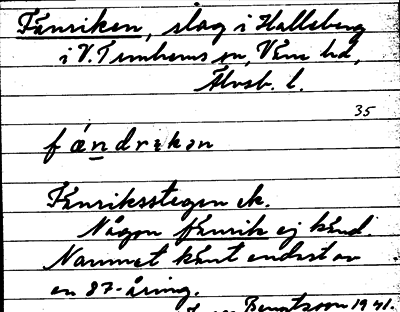 Fänriken, slag i Halleberg
i V. Tunhems sn, Väne hd,
Älvsb. l.
35
fä́ndrekən
Fänriksstegen ek.
Någon fänrik ej känd.
Namnet känt endast av
en 87-åring.
Bengtsson 1941.